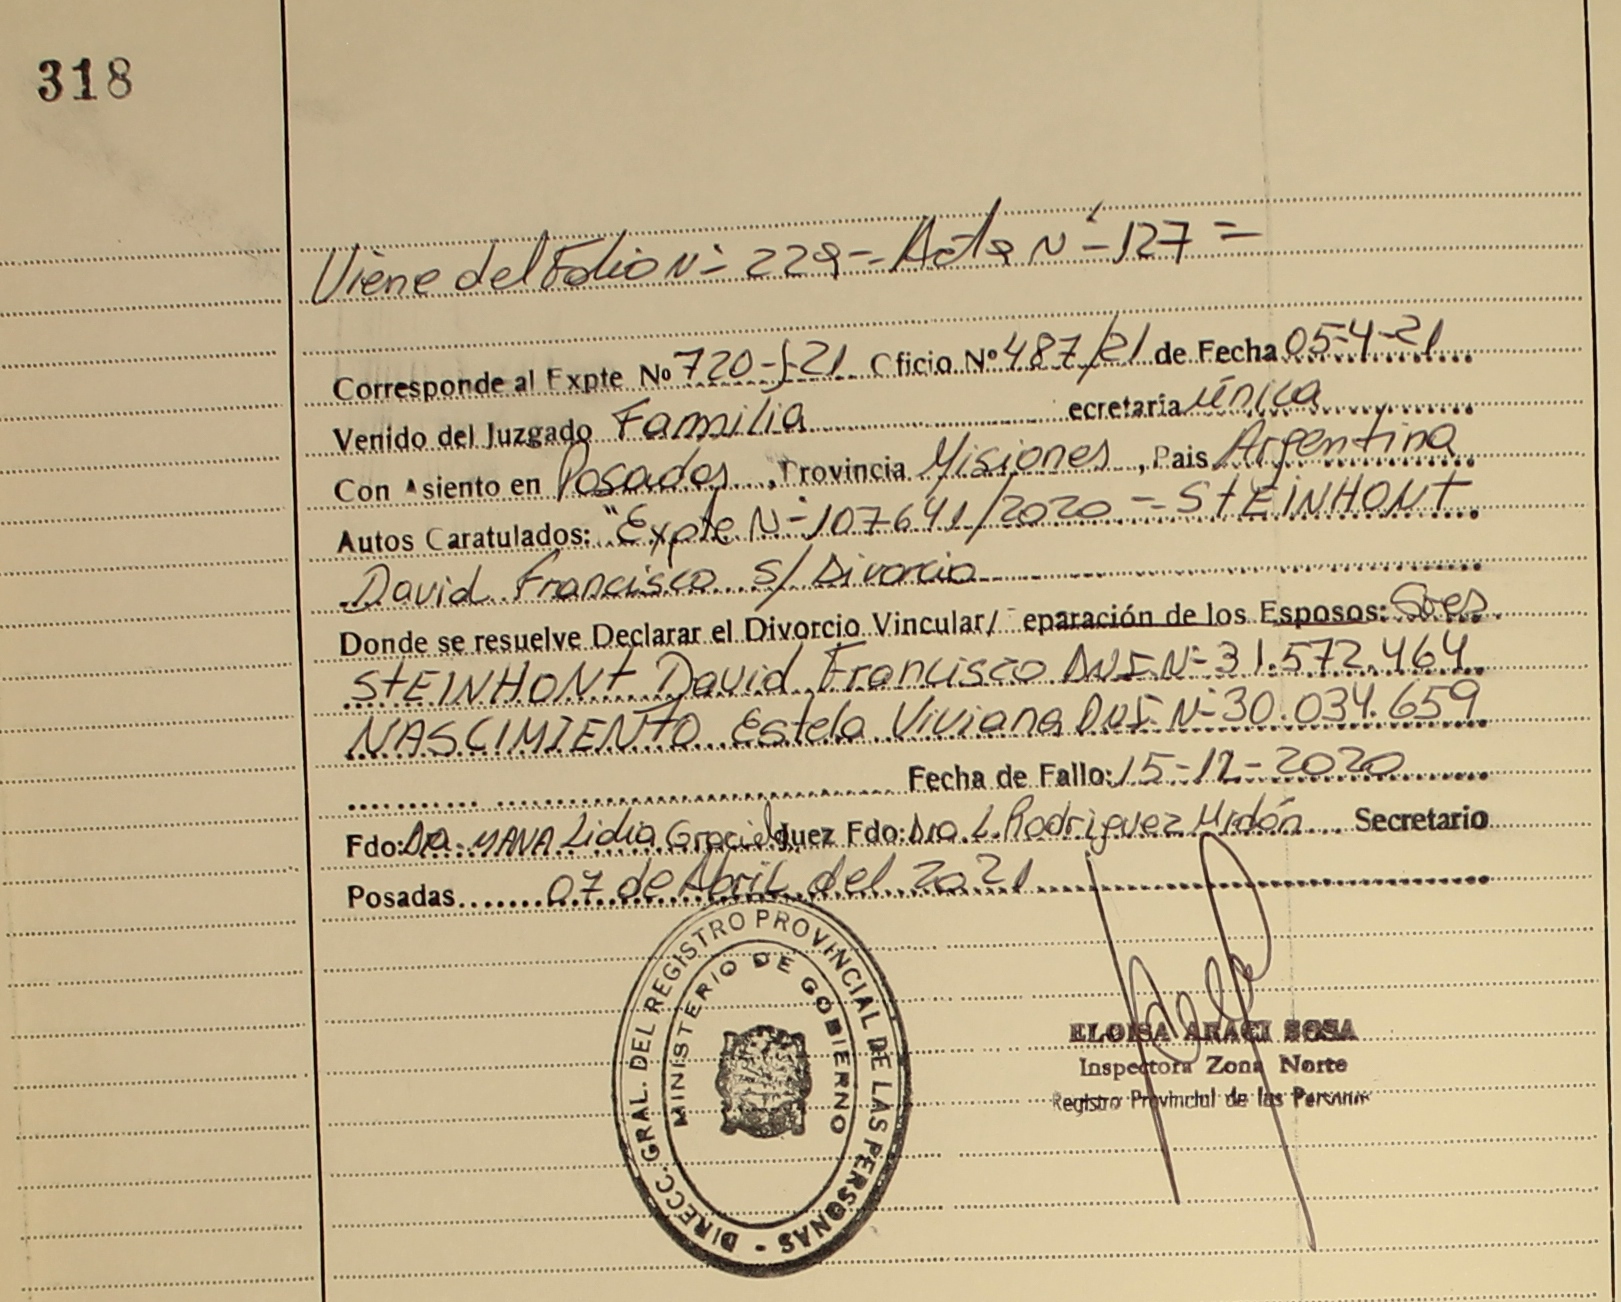 318
Viene del Folio N= 229 - Acta N= 127 =
Corresponde al Expte No 720-J-21 Oficio Nº 487/21 de Fecha 05-4-21
Venido del Juzgado Familia ecretaría única
Con Asiento en Posadas, Provincia Misiones, Pais Argentina
Autos Caratulados: "Expte N= 107641/2020 - StEINHONt
David Francisco s/ Divorcio
Donde se resuelve Declarar el Divorcio Vincular/ eparación de los Esposos: Sres
StEINHONt David Francisco DNI N= 31.572.464
NASCIMIENtO Estela Viviana DNI N= 30.034.659
Fecha de Fallo: 15-12-2020
Fdo: Lidia Graciela Juez Fdo: Dra L. Rodriguez Midón Secretario
Posadas 07 de Abril del 2021
DIRECC. GRAL. DEL REGISTRO PROVINCIAL DE LAS PERSONAS -
MINISTERIO DE GOBIERNO
ELOISA ARACI SOSA
Inspectora Zona Norte
Registro Provincial de las Personas